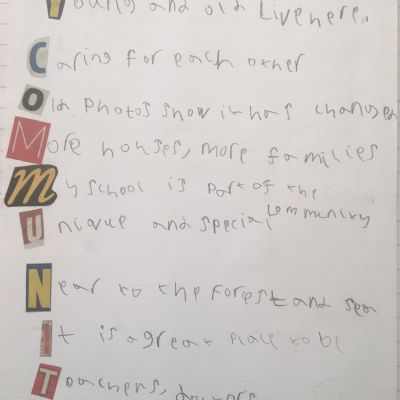 Young and old Live here.
Caring for each other
Old Photos show it has changed
More houses, more families
My school is part of the community
Unique and special
Near to the forest and sea
It is a great place to be
Teachers,